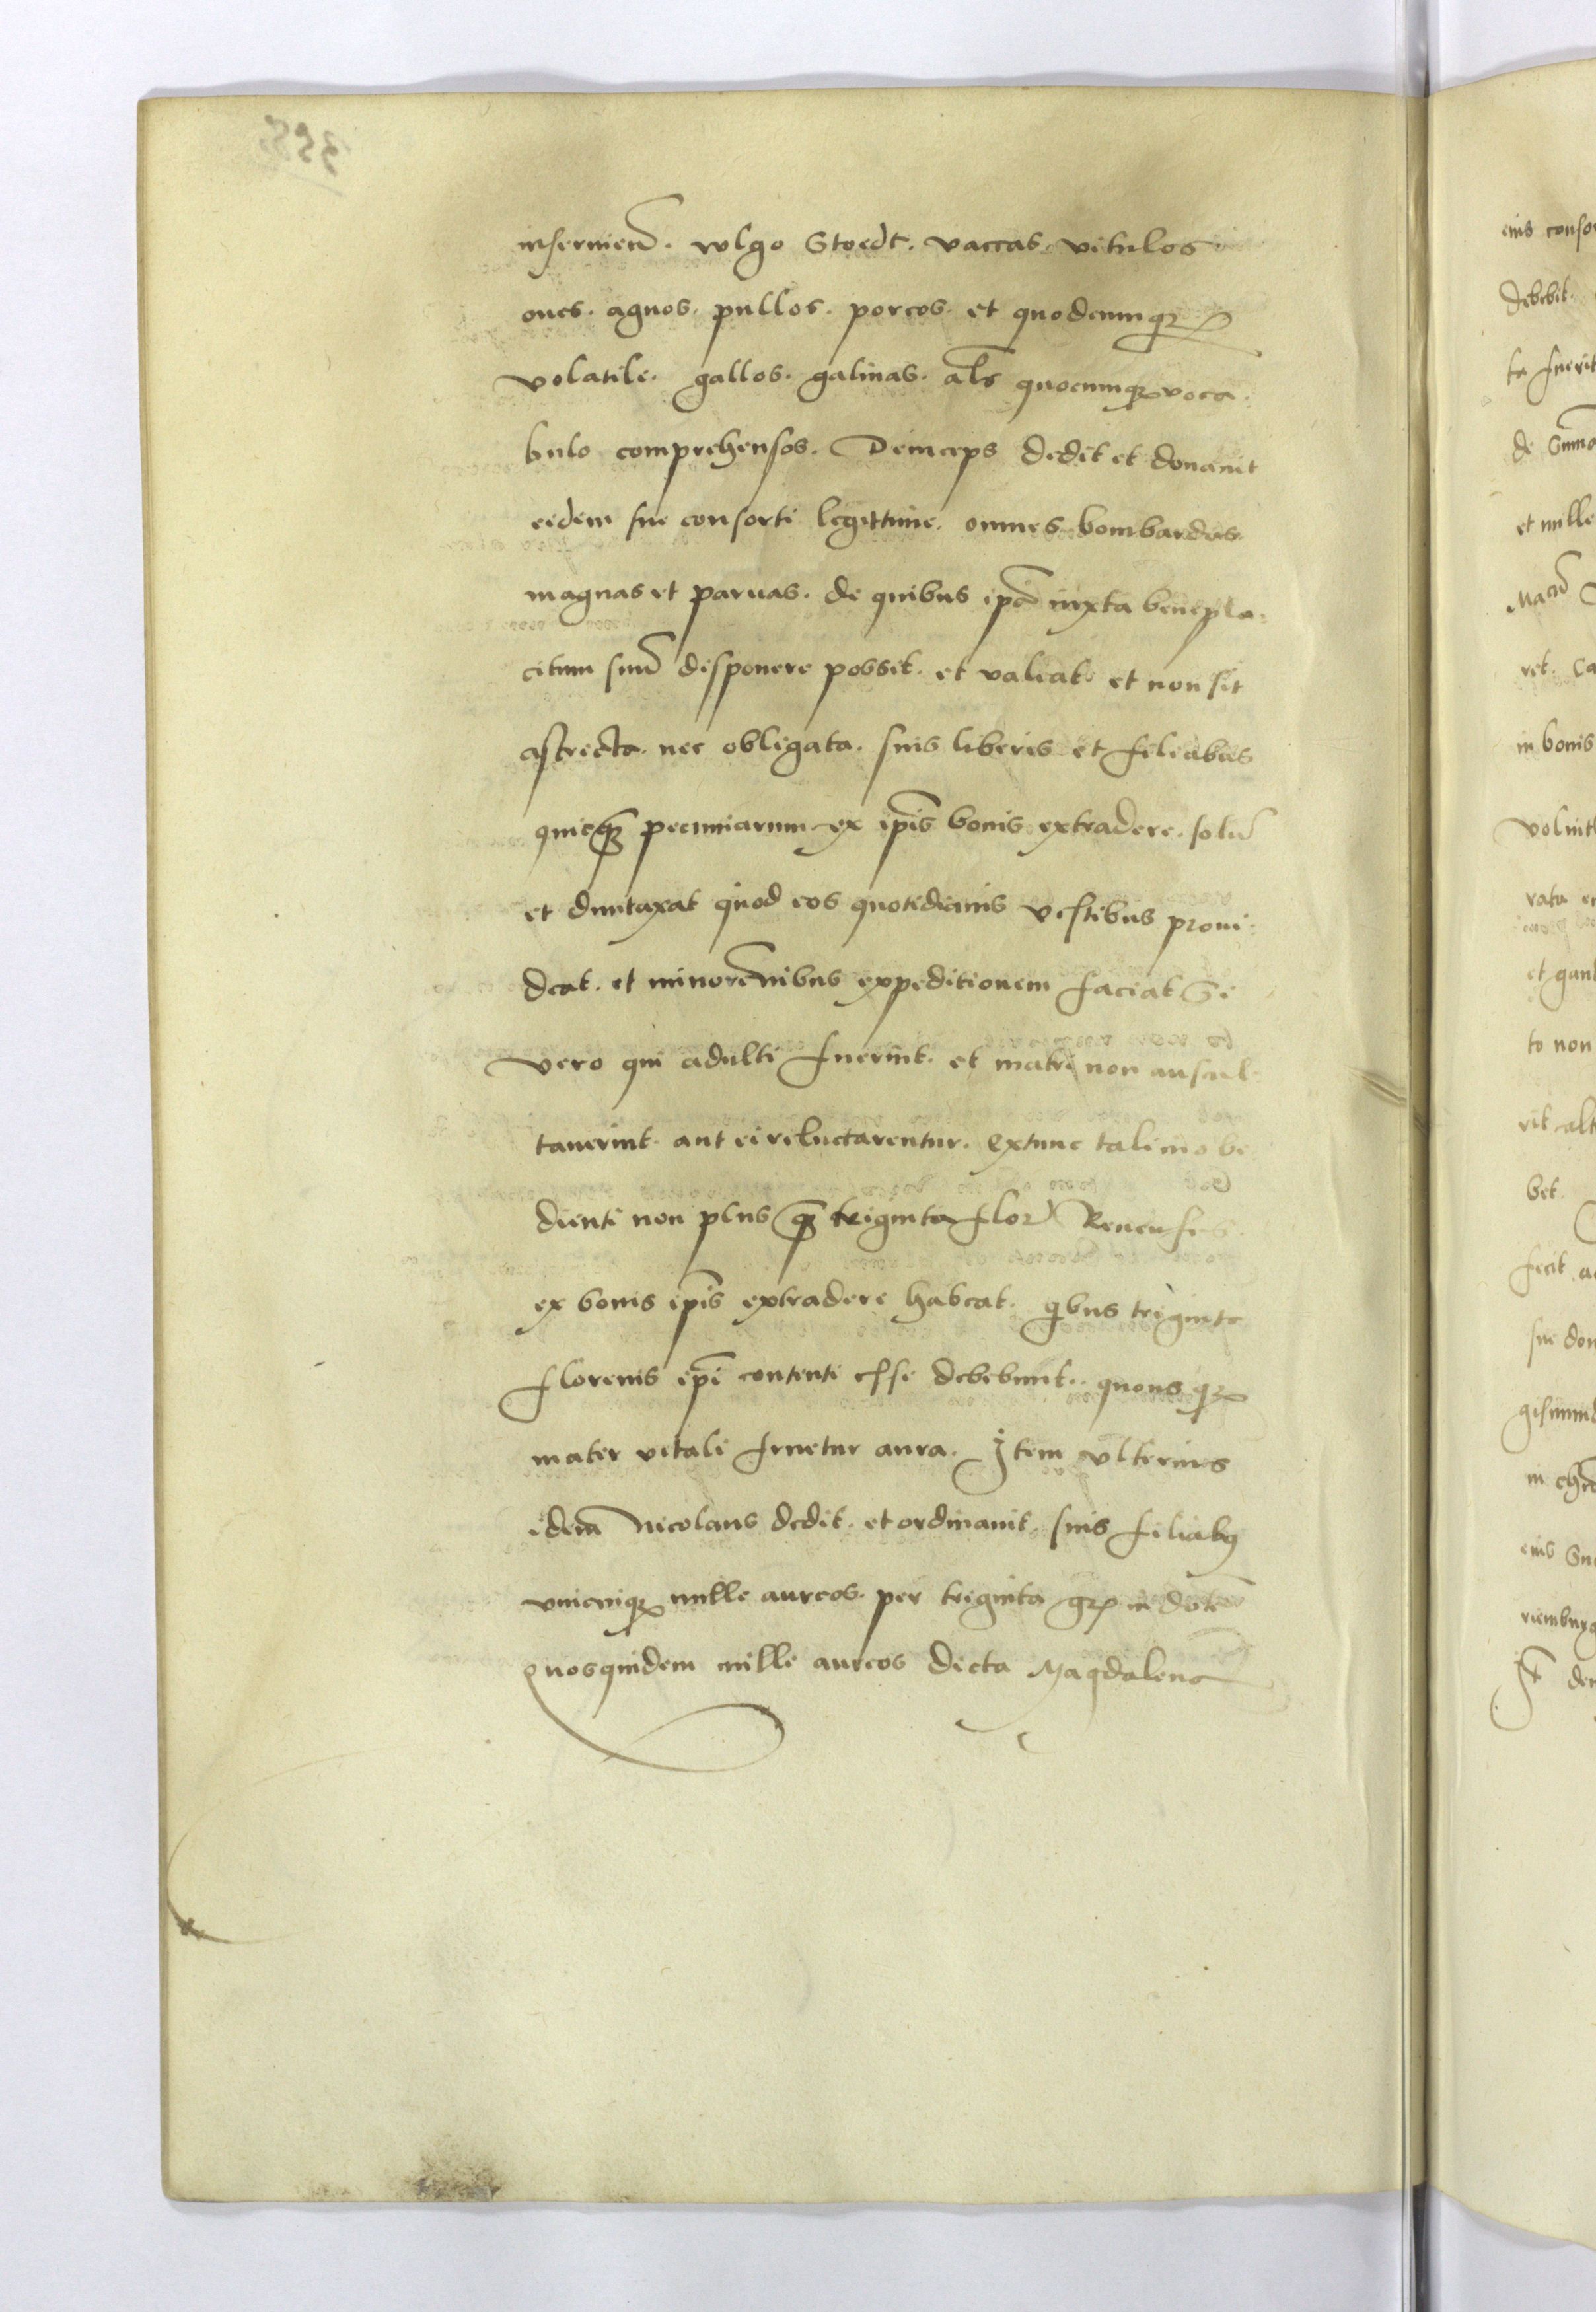 inseruien̄. wlgo Stoedt. vaccas. vitulos
oues. agnos. pullos. porcos. et quodcumqȝ
volatile. gallos. galinas. al̄s quocumqȝ voca-
bulo comprehensos. Deinceps dedit et donauit
eidem sue consorti legittime. omnes bombardas
magnas et paruas. de quibus ip̄a iuxta benepla-
citum suū disponere possit. et valeat. et non sit
astricta. nec obligata. suis liberis et filiabus
quicqȝ pecuniarum ex ip̄is bonis extradere. solū
et duntaxat quod eos quotidianis vestibus proui-
deat. et minorēnibus expeditionem faciat Si
vero qui adulti fuerint. et matri non auscul-
tauerint. aut ei reluctarentur. extunc tali inobe
dienti non plus qȝ triginta flor Renenses
ex bonis ip̄is extradere habeat. qbus triginta
florenis ip̄i contenti esse debebunt. quousqȝ
mater vitali fruetur aura. Item vlterius
idem̄ Nicolaus dedit. et ordinauit. suis filiabꝰ
vnicuiqȝ mille aureos. per triginta gr̄ in dotē
Quosquidem mille aureos dicta Magdalena
eius conso
debebit.
ta fuerit
de Summa
et mille
ret. Ca
in bonis
voluit
rata e
to non
rit alt
bet.
fecit a
sue don
gismund
eius Su